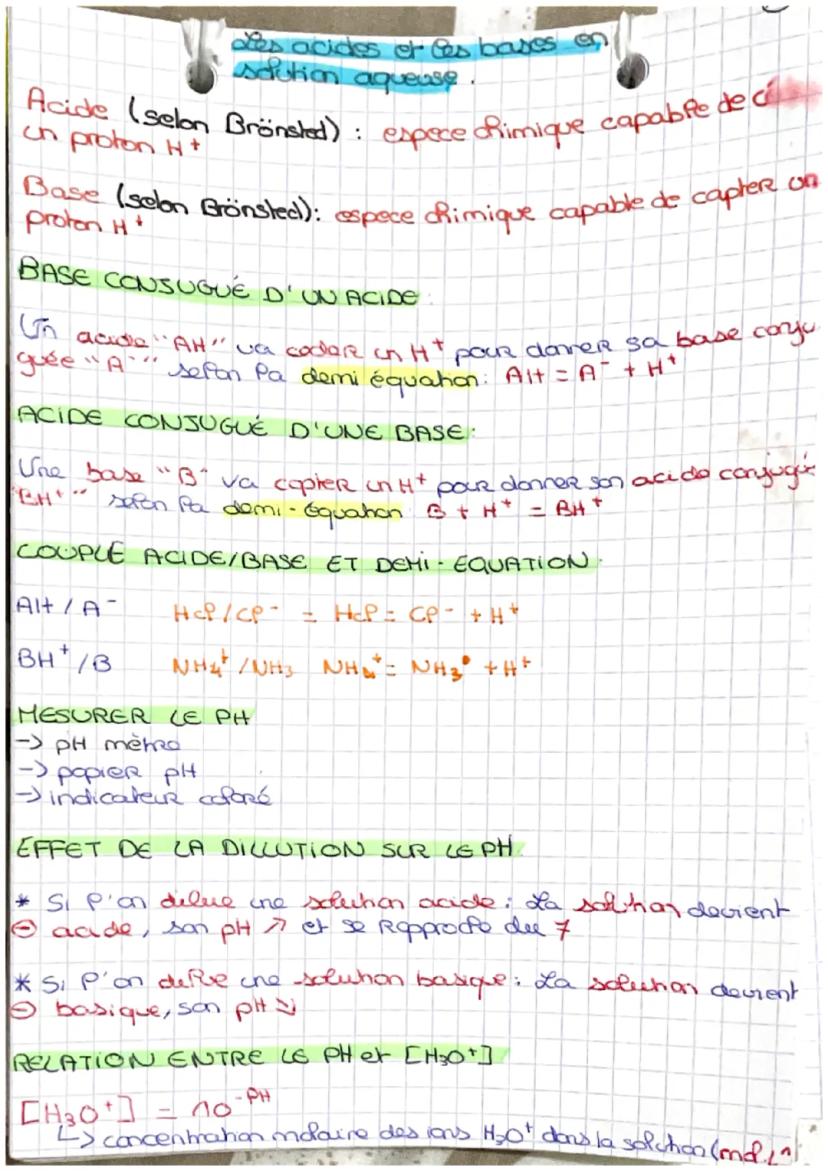 Les acides et les bases en
solution aqueuse.
Acide (selon Brönsted) : espece chimique capable de
un proton H+
Base (selon Brönsted): espece chimique capable de capter un
proton H+
BASE CONJUGUÉ D'UN ACIDE:
Un acide "AH" va céder un H+ pour donner sa base conju
guée "A-" selon la demi équation: AH = A- + H+
ACIDE CONJUGUÉ D'UNE BASE:
Une base "B" va capter un H+ pour donner son acide conjugué
"BH+" selon la demi-équation B + H+ = BH+
COUPLE ACIDE/BASE ET DEMI-EQUATION
AH / A- HCl/Cl- = HCl = Cl- + H+
BH+/B NH4+/NH3 NH4+ = NH3 + H+
MESURER LE PH
-> pH mètre
-> papier pH
-> indicateur coloré
EFFET DE LA DILLUTION SUR LE PH
* Si l'on dilue une solution acide: La solution devient
⊖ acide, son pH ↗ et se rapproche du 7
* Si l'on dilue une solution basique: La solution devient
⊖ basique, son pH ↘
RELATION ENTRE LE PH et [H3O+]
[H3O+] = 10-PH
↳ concentration molaire des ions H3O+ dans la solution (mol